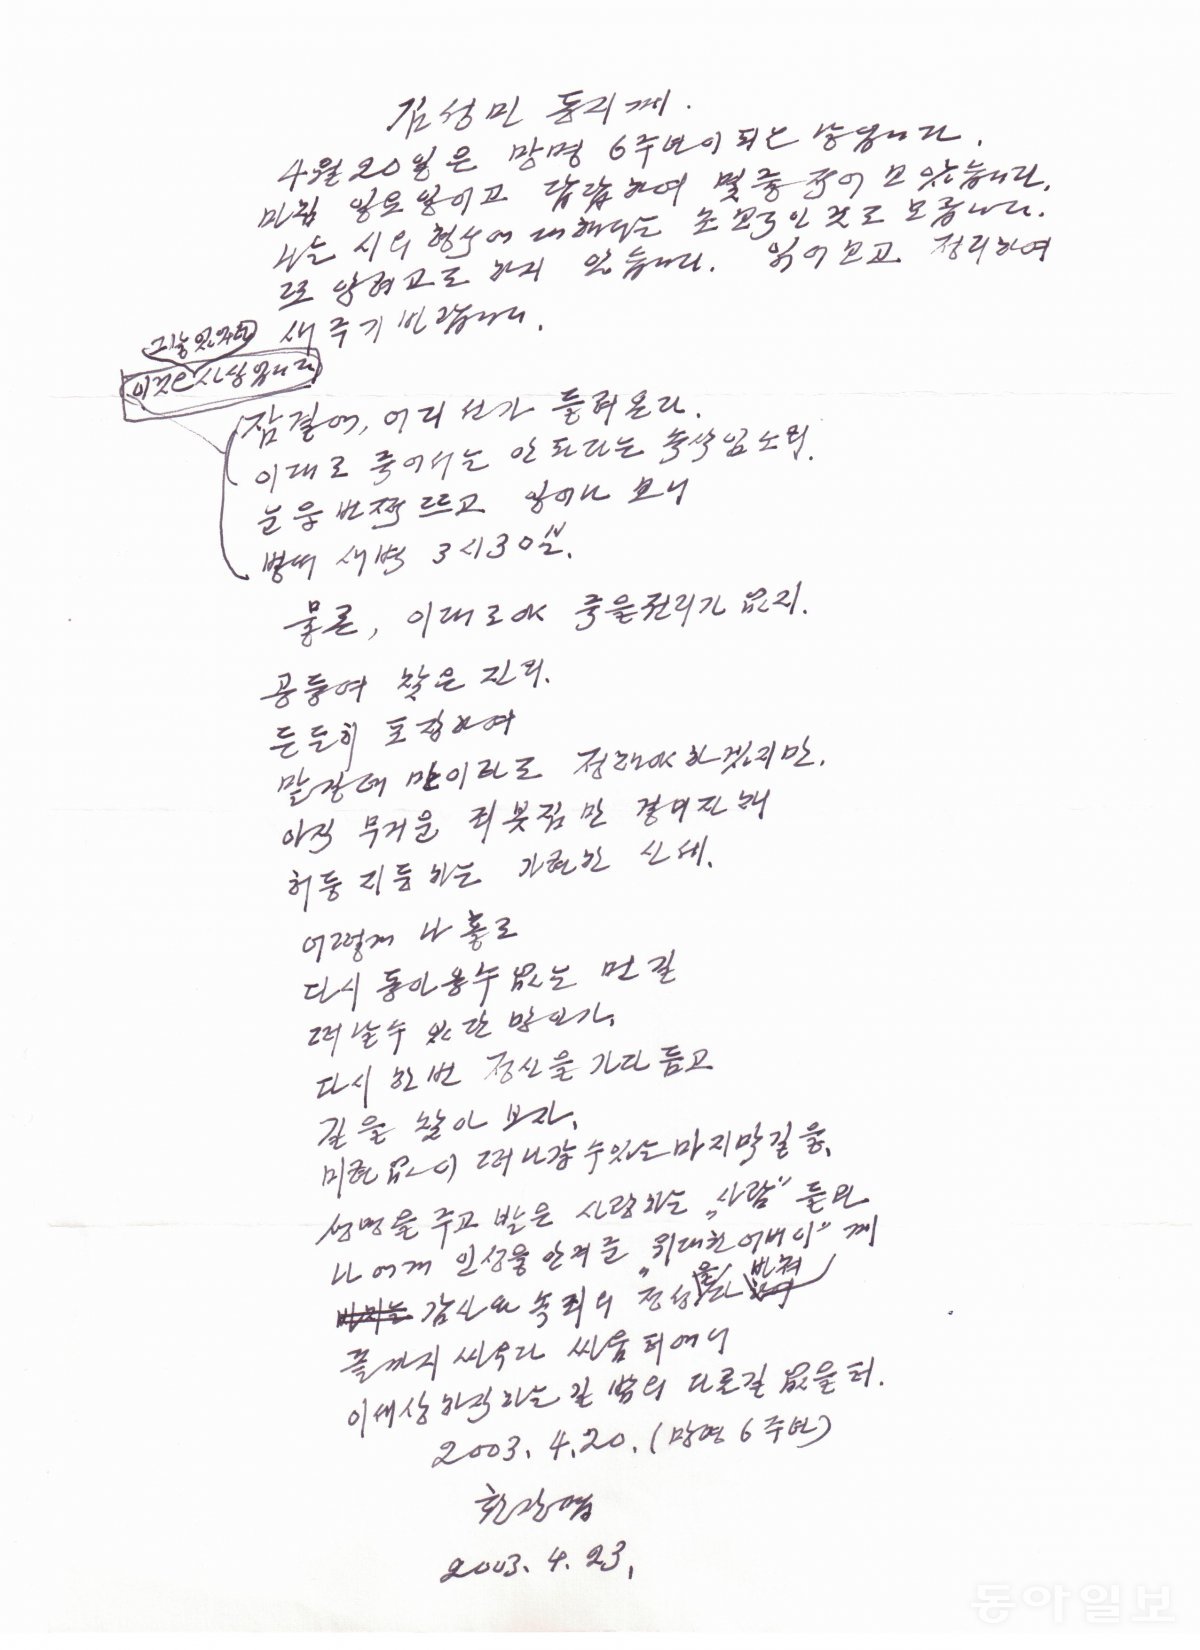 김성민 동지께.
4월 20일은 망명 6주년이 되는 날입니다.
마침 일요일이고 답답하여 몇줄 적어 보았습니다.
나는 시의 형식에 대해서는 초보적인 것도 모릅니다.
또 알려고도 하지 않습니다. 읽어보고 정리하여
새 주기 바랍니다.
이것은 사상입니다
잠결에, 어디선가 들려온다.
이대로 죽어서는 안된다는 속삭임소리.
눈을 번쩍 뜨고 일어나 보니
별빛 새벽 3시30분.
물론, 이대로야 죽을 권리가 없지.
공들여 찾은 진리.
든든히 포장하여
말장에 만이라도 전해야 하겠지만.
아직 무거운 죄봇짐만 걸머진 채
허둥지둥하는 가련한 신세.
어떻게 나 홀로
다시 돌아올수 없는 먼길
떠날수 있단 말인가.
다시 한번 정신을 가다듬고
길을 찾아 보자.
미련없이 떠나갈 수 있는 마지막 길을.
생명을 주고 받은 사랑하는 "사람"들과
나에게 인생을 안겨준 "위대한 어버이"께
감사와 속죄의 정성을 다 바쳐
끝까지 싸우다 싸움터에서
이세상 하직하는 길 밖의 다른길 없을터.
2003. 4. 20. (망명 6주년)
황장엽
2003. 4. 23.
동아일보